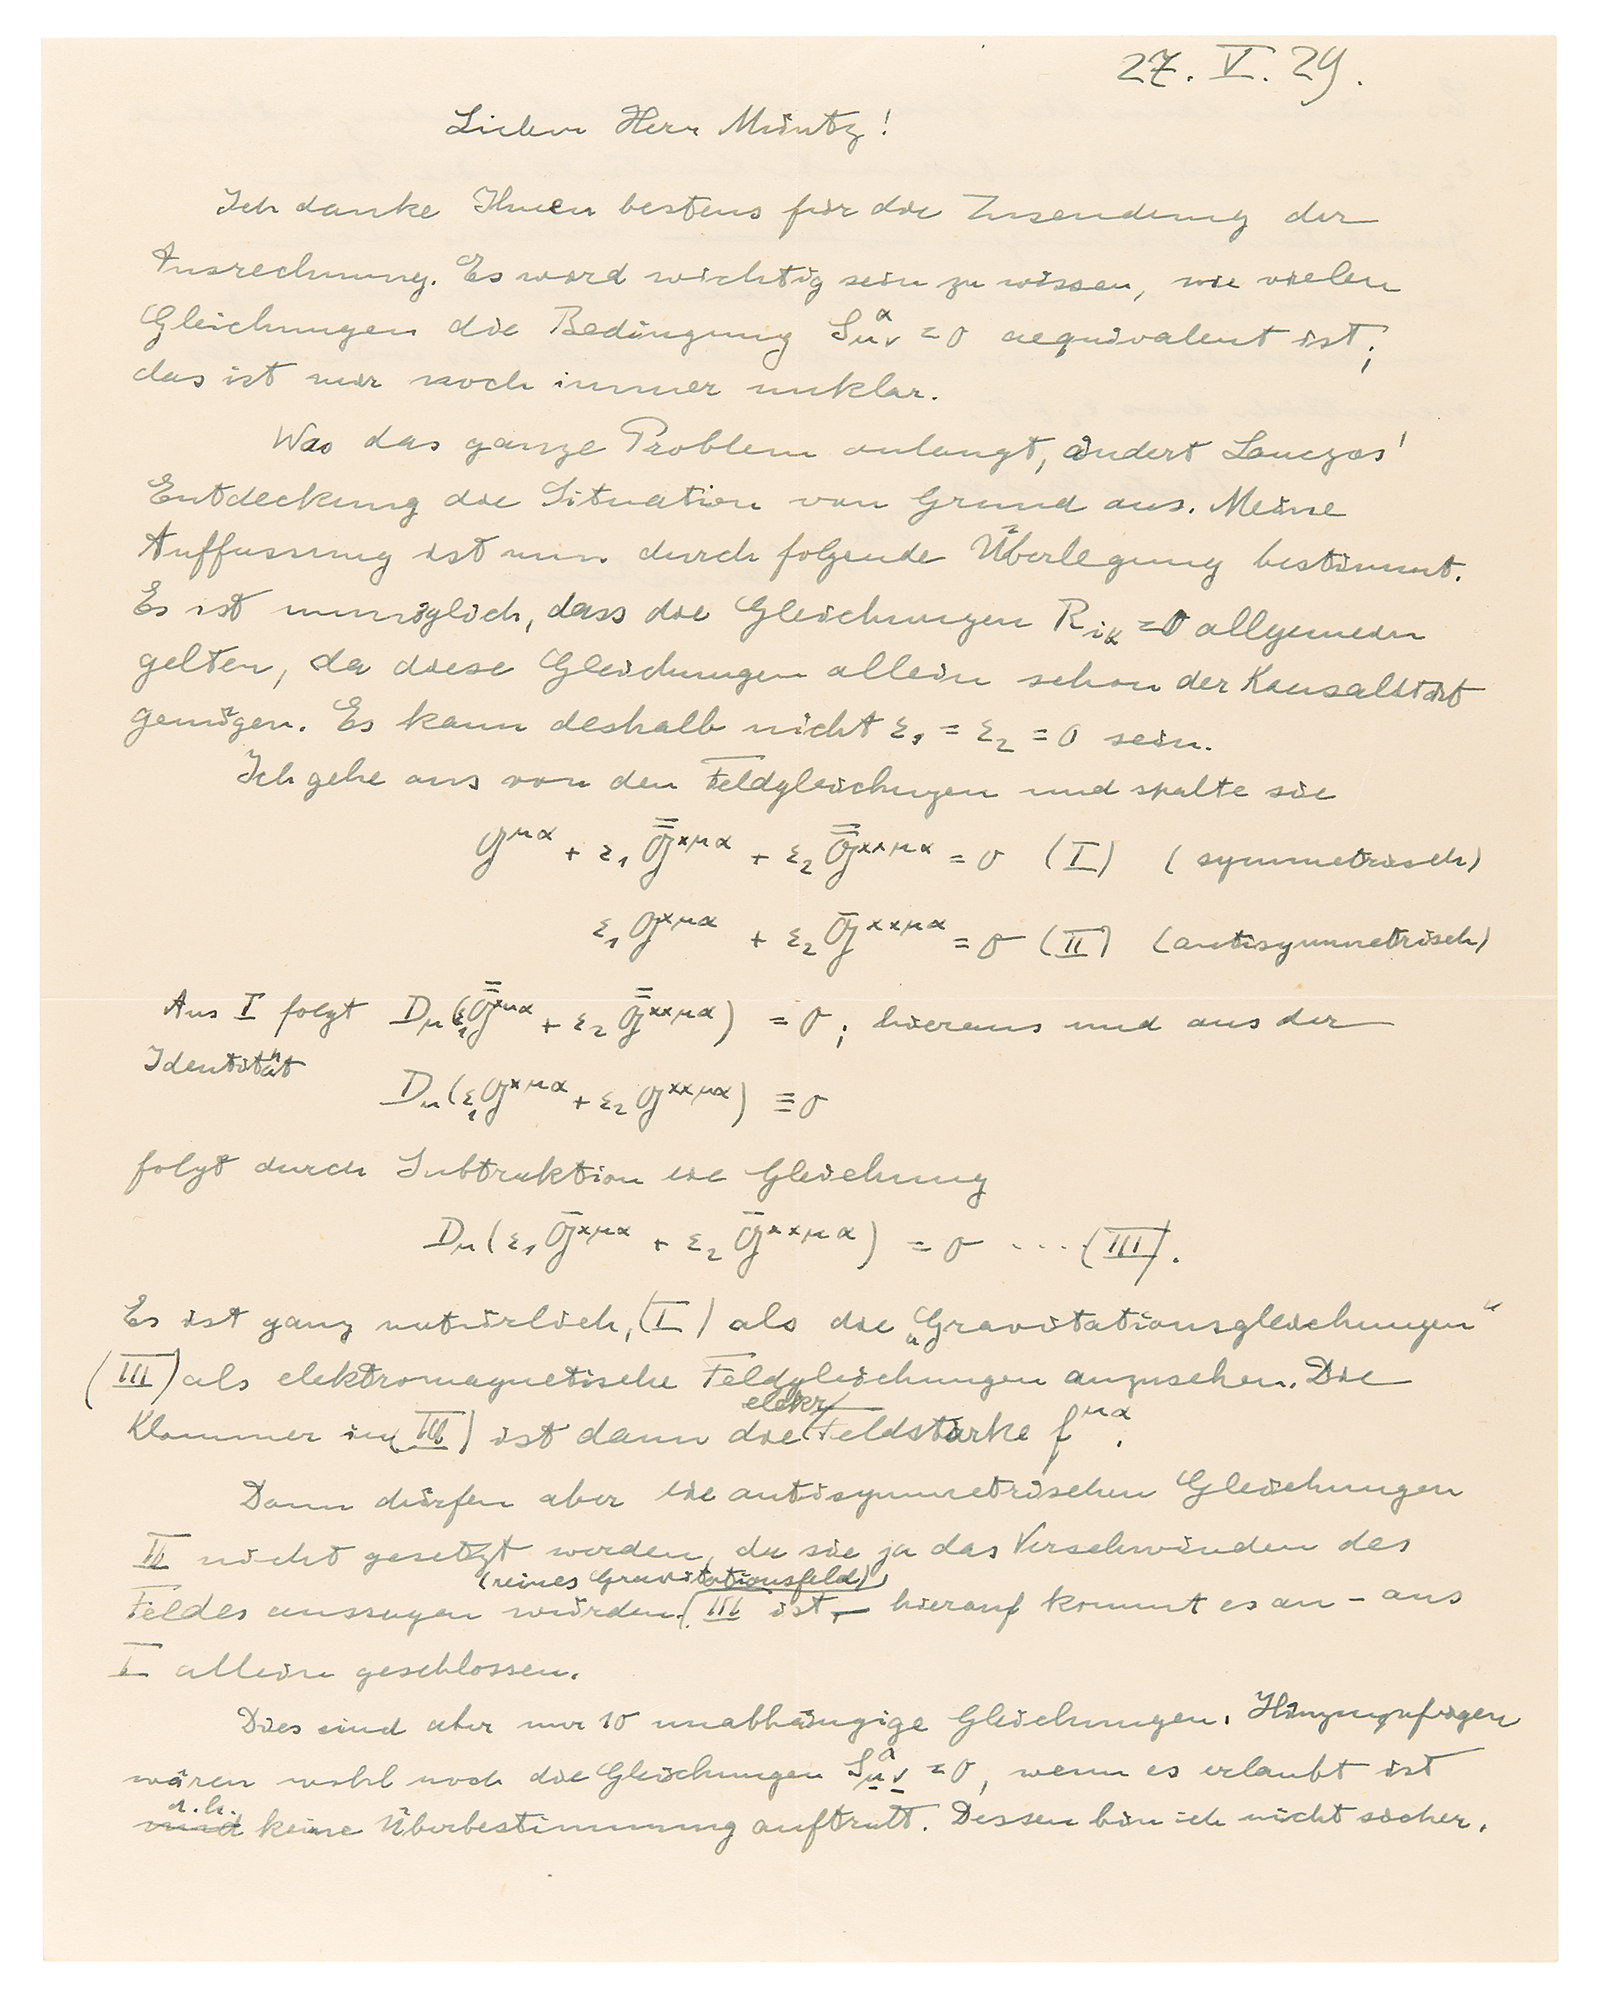 27. V. 29.
Lieber Herr Müntz!
Ich danke Ihnen bestens für die Zusendung der
Ausrechnung. Es wird wichtig sein zu wissen, wie vielen
Gleichungen die Bedingung S^α_μν = 0 aequivalent ist;
das ist mir noch immer unklar.
Was das ganze Problem anlangt, ändert Lanczos'
Entdeckung die Situation von Grund aus. Meine
Auffassung ist nun durch folgende Überlegung bestimmt.
Es ist unmöglich, dass die Gleichungen R_ik = 0 allgemein
gelten, da diese Gleichungen allein schon der Kausalität
genügen. Es kann deshalb nicht ε₁ = ε₂ = 0 sein.
Ich gehe aus von den Feldgleichungen und spalte sie
G^μα + ε₁ G̿^×μα + ε₂ G̿^××μα = 0 (I) (symmetrisch)
ε₁ G^×μα + ε₂ G̅^××μα = 0 (II) (antisymmetrisch)
Aus I folgt D_μ(ε₁ G̿^×μα + ε₂ G̿^××μα) = 0; hieraus und aus der
Identität
D_μ(ε₁ G^×μα + ε₂ G^××μα) ≡ 0
folgt durch Subtraktion die Gleichung
D_μ(ε₁ G̅^×μα + ε₂ G̅^××μα) = 0 ... (III).
Es ist ganz natürlich, (I) als die „Gravitationsgleichungen“
(III) als elektromagnetische Feldgleichungen anzusehen. Die
Klammer in (III) ist dann die elektr. Feldstärke f^μα.
Dann dürfen aber die antisymmetrischen Gleichungen
II nicht gesetzt werden, da sie ja das Verschwinden des
(reines Gravitationsfeld)
Feldes aussagen würden. (III ist, – hierauf kommt es an – aus
I allein geschlossen.
Dies sind aber nur 10 unabhängige Gleichungen. Hinzuzufügen
wären wohl noch die Gleichungen S^α_μν = 0, wenn es erlaubt ist
d.h.
und keine Überbestimmung auftritt. Dessen bin ich nicht sicher.